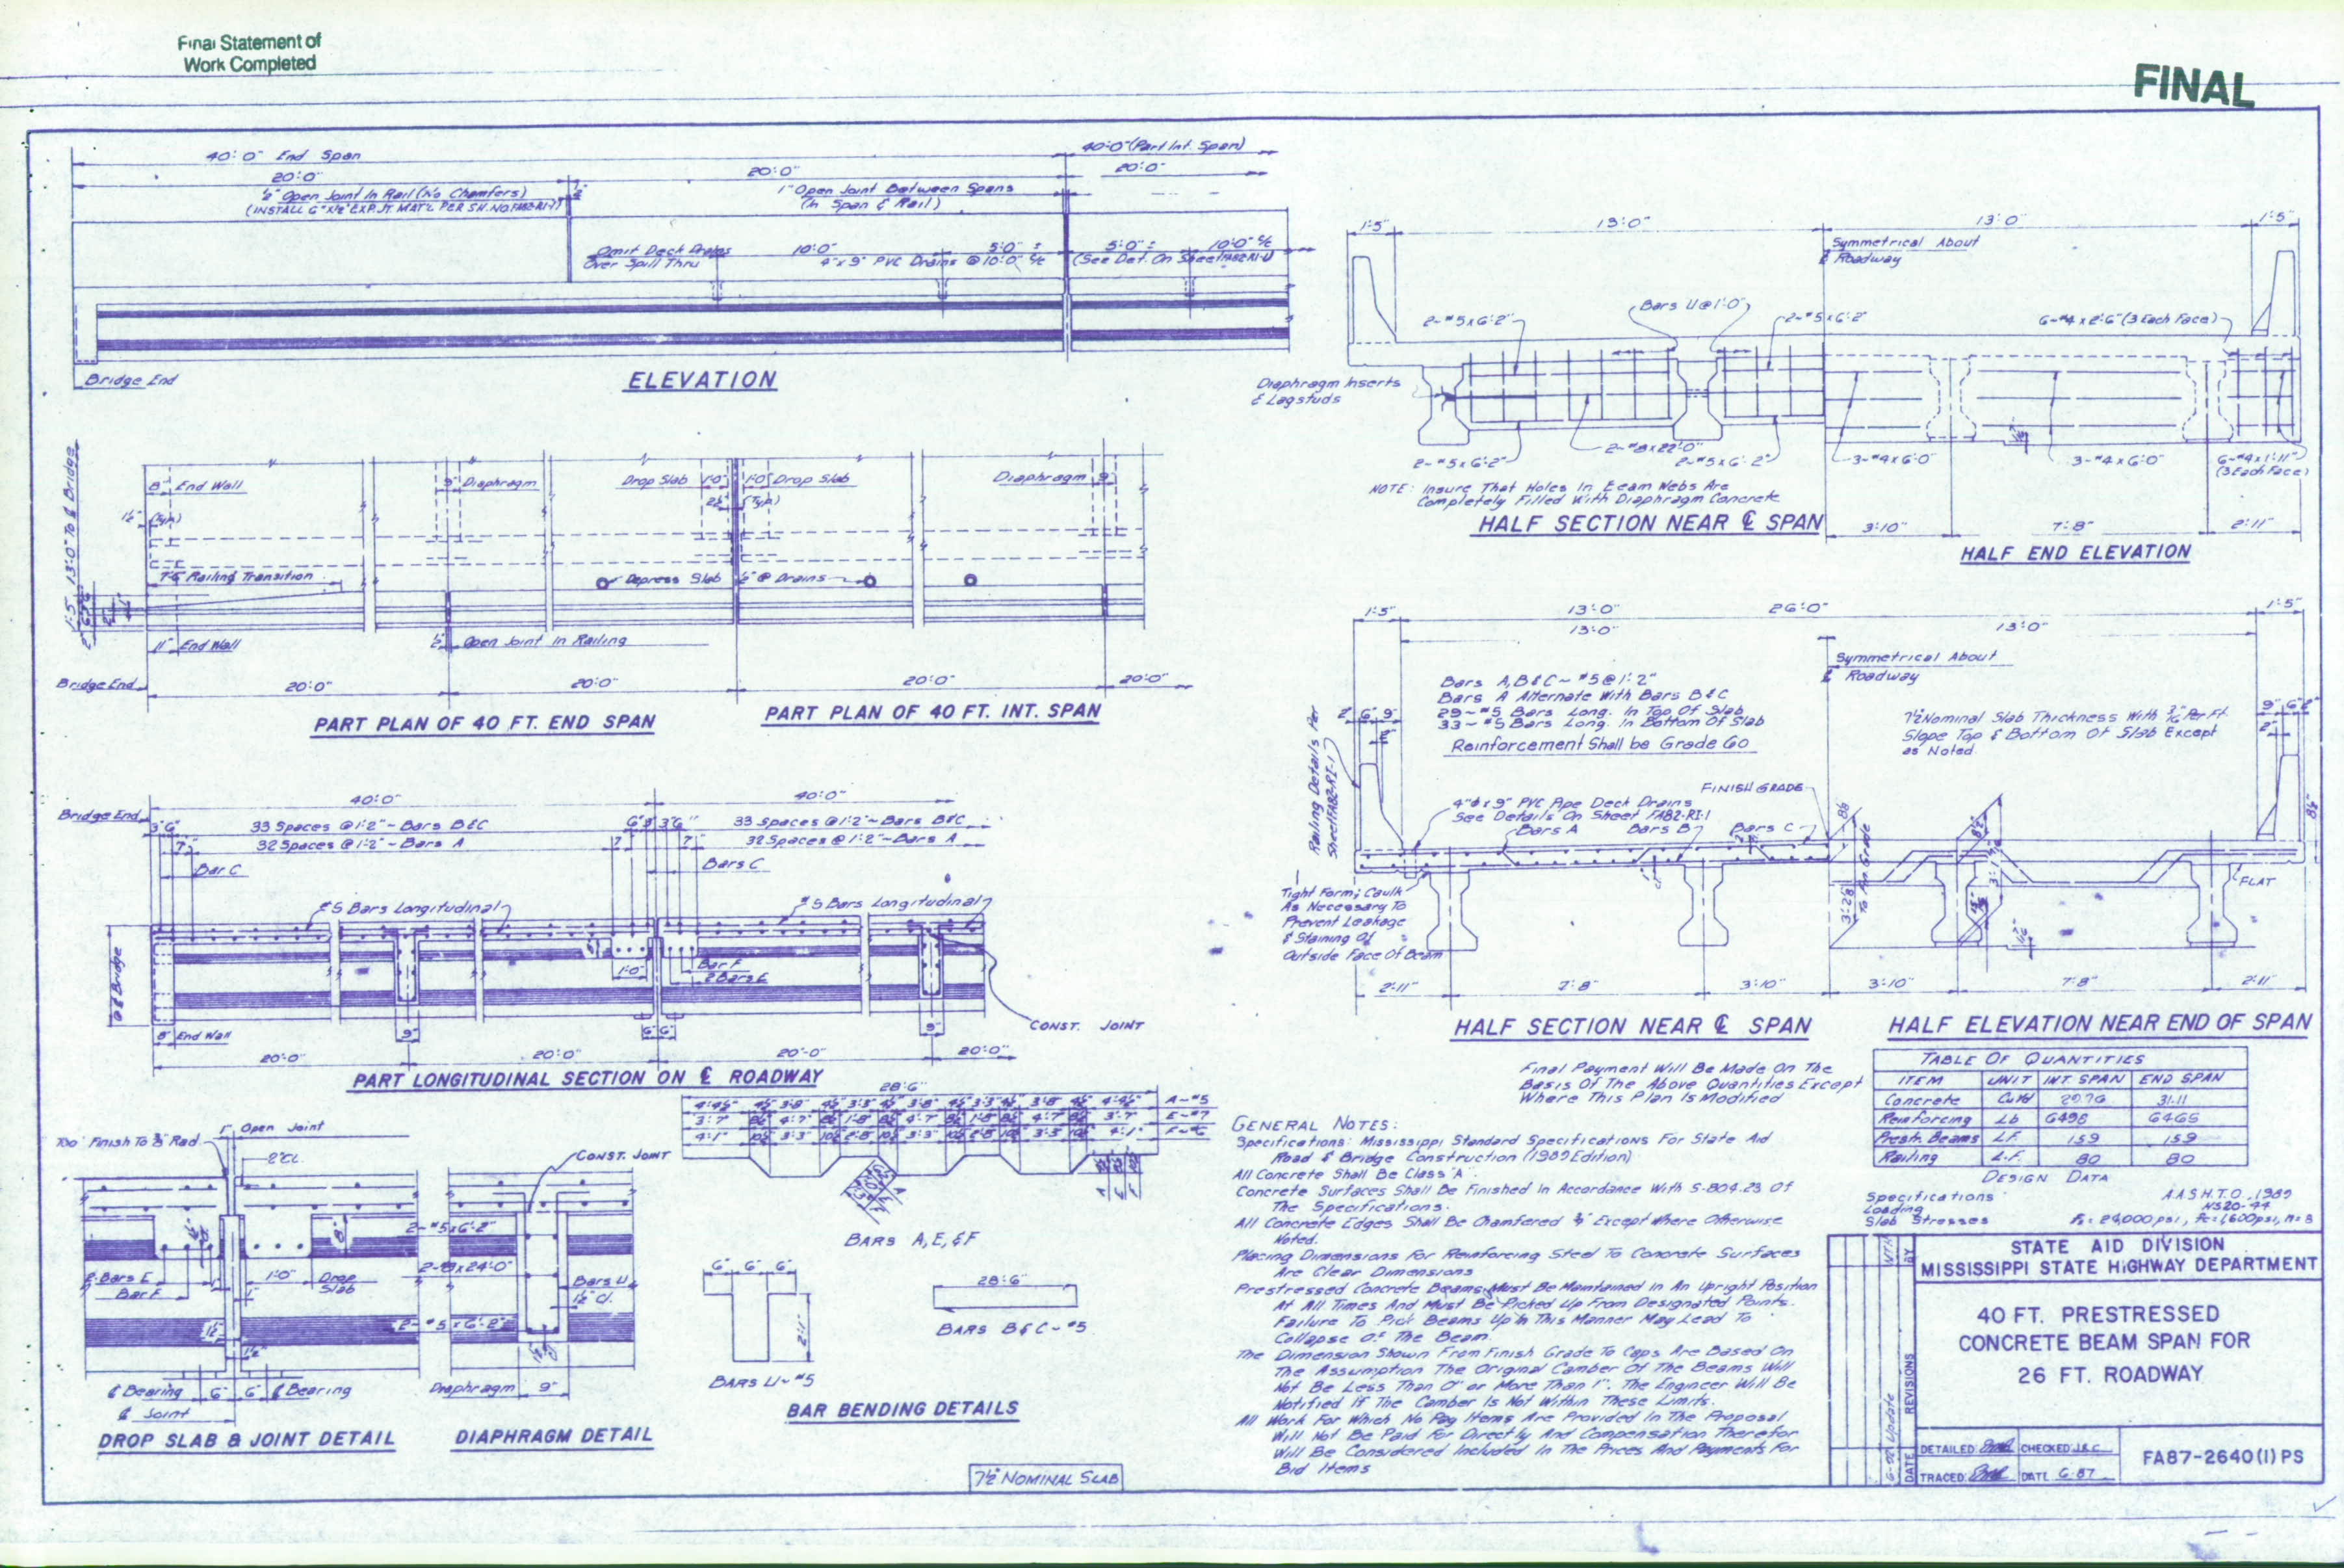 Final Statement of
Work Completed
FINAL
40'-0" End Span
40'-0" (Part Int. Span)
20'-0"
20'-0"
20'-0"
½" Open Joint In Rail (No Chamfers)
1" Open Joint Between Spans
(In Span & Rail)
Omit Deck Drains
Over Spill Thru
10'-0"
5'-0" ±
5'-0" ±
10'-0" c/c
4" x 9" PVC Drains @ 10'-0" c/c
Bridge End
ELEVATION
8" End Wall
9" Diaphragm
Drop Slab
1'-0"
1'-0" Drop Slab
(Typ.)
Diaphragm
9"
1½"
(Typ.)
13'-0" To ℄ Bridge
1'-5"
7'-6" Railing Transition
Depress Slab ½" @ Drains
11" End Wall
½" Open Joint In Railing
Bridge End
20'-0"
20'-0"
20'-0"
20'-0"
PART PLAN OF 40 FT. END SPAN
PART PLAN OF 40 FT. INT. SPAN
Bridge End
40'-0"
40'-0"
3" 6"
33 Spaces @ 1'-2" ~ Bars B&C
6" 3" 3" 6"
33 Spaces @ 1'-2" ~ Bars B&C
7"
32 Spaces @ 1'-2" ~ Bars A
7"
7"
32 Spaces @ 1'-2" ~ Bars A
Bar C
Bars C
#5 Bars Longitudinal
#5 Bars Longitudinal
℄ Of Bridge
1'-0"
Bar F
2 Bars E
CONST. JOINT
8" End Wall
9"
6" 6"
9"
20'-0"
20'-0"
20'-0"
20'-0"
PART LONGITUDINAL SECTION ON ℄ ROADWAY
Finish To ⅜" Rad.
1" Open Joint
2" CL.
8"
2-Bars E
Bar F
1'-0"
Drop
Slab
1"
1½"
1½"
℄ Bearing
6"
6"
℄ Bearing
℄ Joint
DROP SLAB & JOINT DETAIL
CONST. JOINT
2~#5x6'-2"
2~#8x24'-0"
Bars U
1½" Cl.
2~#5x6'-2"
Diaphragm
9"
DIAPHRAGM DETAIL
28'-6"
A~#5
E~#7
F~#6
BARS A,E,&F
6" 6" 6"
2'-1"
BARS U~#5
28'-6"
BARS B&C~#5
BAR BENDING DETAILS
7½" NOMINAL SLAB
1'-5"
13'-0"
13'-0"
1'-5"
Symmetrical About
℄ Roadway
Bars U @ 1'-0"
2~#5x6'-2"
2~#5x6'-2"
6~#4x2'-6" (3 Each Face)
Diaphragm Inserts
& Lagstuds
2~#5x6'-2"
2~#8x22'-0"
2~#5x6'-2"
3~#4x6'-0"
3~#4x6'-0"
6~#4x1'-11"
(3 Each Face)
NOTE: Insure That Holes In Beam Webs Are
Completely Filled With Diaphragm Concrete
HALF SECTION NEAR ℄ SPAN
3'-10"
7'-8"
2'-11"
HALF END ELEVATION
1'-5"
13'-0"
26'-0"
1'-5"
13'-0"
13'-0"
Symmetrical About
℄ Roadway
Bars A,B&C ~ #5 @ 1'-2"
Bars A Alternate With Bars B&C
29~#5 Bars Long. In Top Of Slab
33~#5 Bars Long. In Bottom Of Slab
Reinforcement Shall be Grade 60
7½" Nominal Slab Thickness With 3/16" Per Ft.
Slope Top & Bottom Of Slab Except
as Noted
Railing Details Per
Sheet FA82-RI-1
FINISH GRADE
4"ϕ x 9" PVC Pipe Deck Drains
See Details On Sheet FA82-RI-1
Bars A
Bars B
Bars C
Tight Form; Caulk
As Necessary To
Prevent Leakage
& Staining Of
Outside Face Of Beam
FLAT
2'-11"
7'-8"
3'-10"
3'-10"
7'-8"
2'-11"
HALF SECTION NEAR ℄ SPAN
HALF ELEVATION NEAR END OF SPAN
Final Payment Will Be Made On The
Basis Of The Above Quantities Except
Where This Plan Is Modified
TABLE OF QUANTITIES
ITEM UNIT INT. SPAN END SPAN
Concrete CuYd 29.76 31.11
Reinforcing Lb 6498 6465
Prestr. Beams L.F. 159 159
Railing L.F. 80 80
DESIGN DATA
Specifications A.A.S.H.T.O. 1989
Loading HS20-44
Slab Stresses fs = 24,000 psi, fc = 1,600 psi, n = 8
GENERAL NOTES:
Specifications: Mississippi Standard Specifications For State Aid
Road & Bridge Construction (1989 Edition)
All Concrete Shall Be Class "A".
Concrete Surfaces Shall Be Finished In Accordance With S-804.23 Of
The Specifications.
All Concrete Edges Shall Be Chamfered ¾" Except Where Otherwise
Noted.
Placing Dimensions For Reinforcing Steel To Concrete Surfaces
Are Clear Dimensions
Prestressed Concrete Beams Must Be Maintained In An Upright Position
At All Times And Must Be Picked Up From Designated Points.
Failure To Pick Beams Up In This Manner May Lead To
Collapse Of The Beam.
The Dimension Shown From Finish Grade To Caps Are Based On
The Assumption The Original Camber Of The Beams Will
Not Be Less Than 0" or More Than 1". The Engineer Will Be
Notified If The Camber Is Not Within These Limits.
All Work For Which No Pay Items Are Provided In The Proposal
Will Not Be Paid For Directly And Compensation Therefor
Will Be Considered Included In The Prices And Payments For
Bid Items
STATE AID DIVISION
MISSISSIPPI STATE HIGHWAY DEPARTMENT
40 FT. PRESTRESSED
CONCRETE BEAM SPAN FOR
26 FT. ROADWAY
BY
REVISIONS
Update
DATE
DETAILED:
CHECKED: J.&C.
TRACED:
DATE 6-87
FA87-2640(1)PS